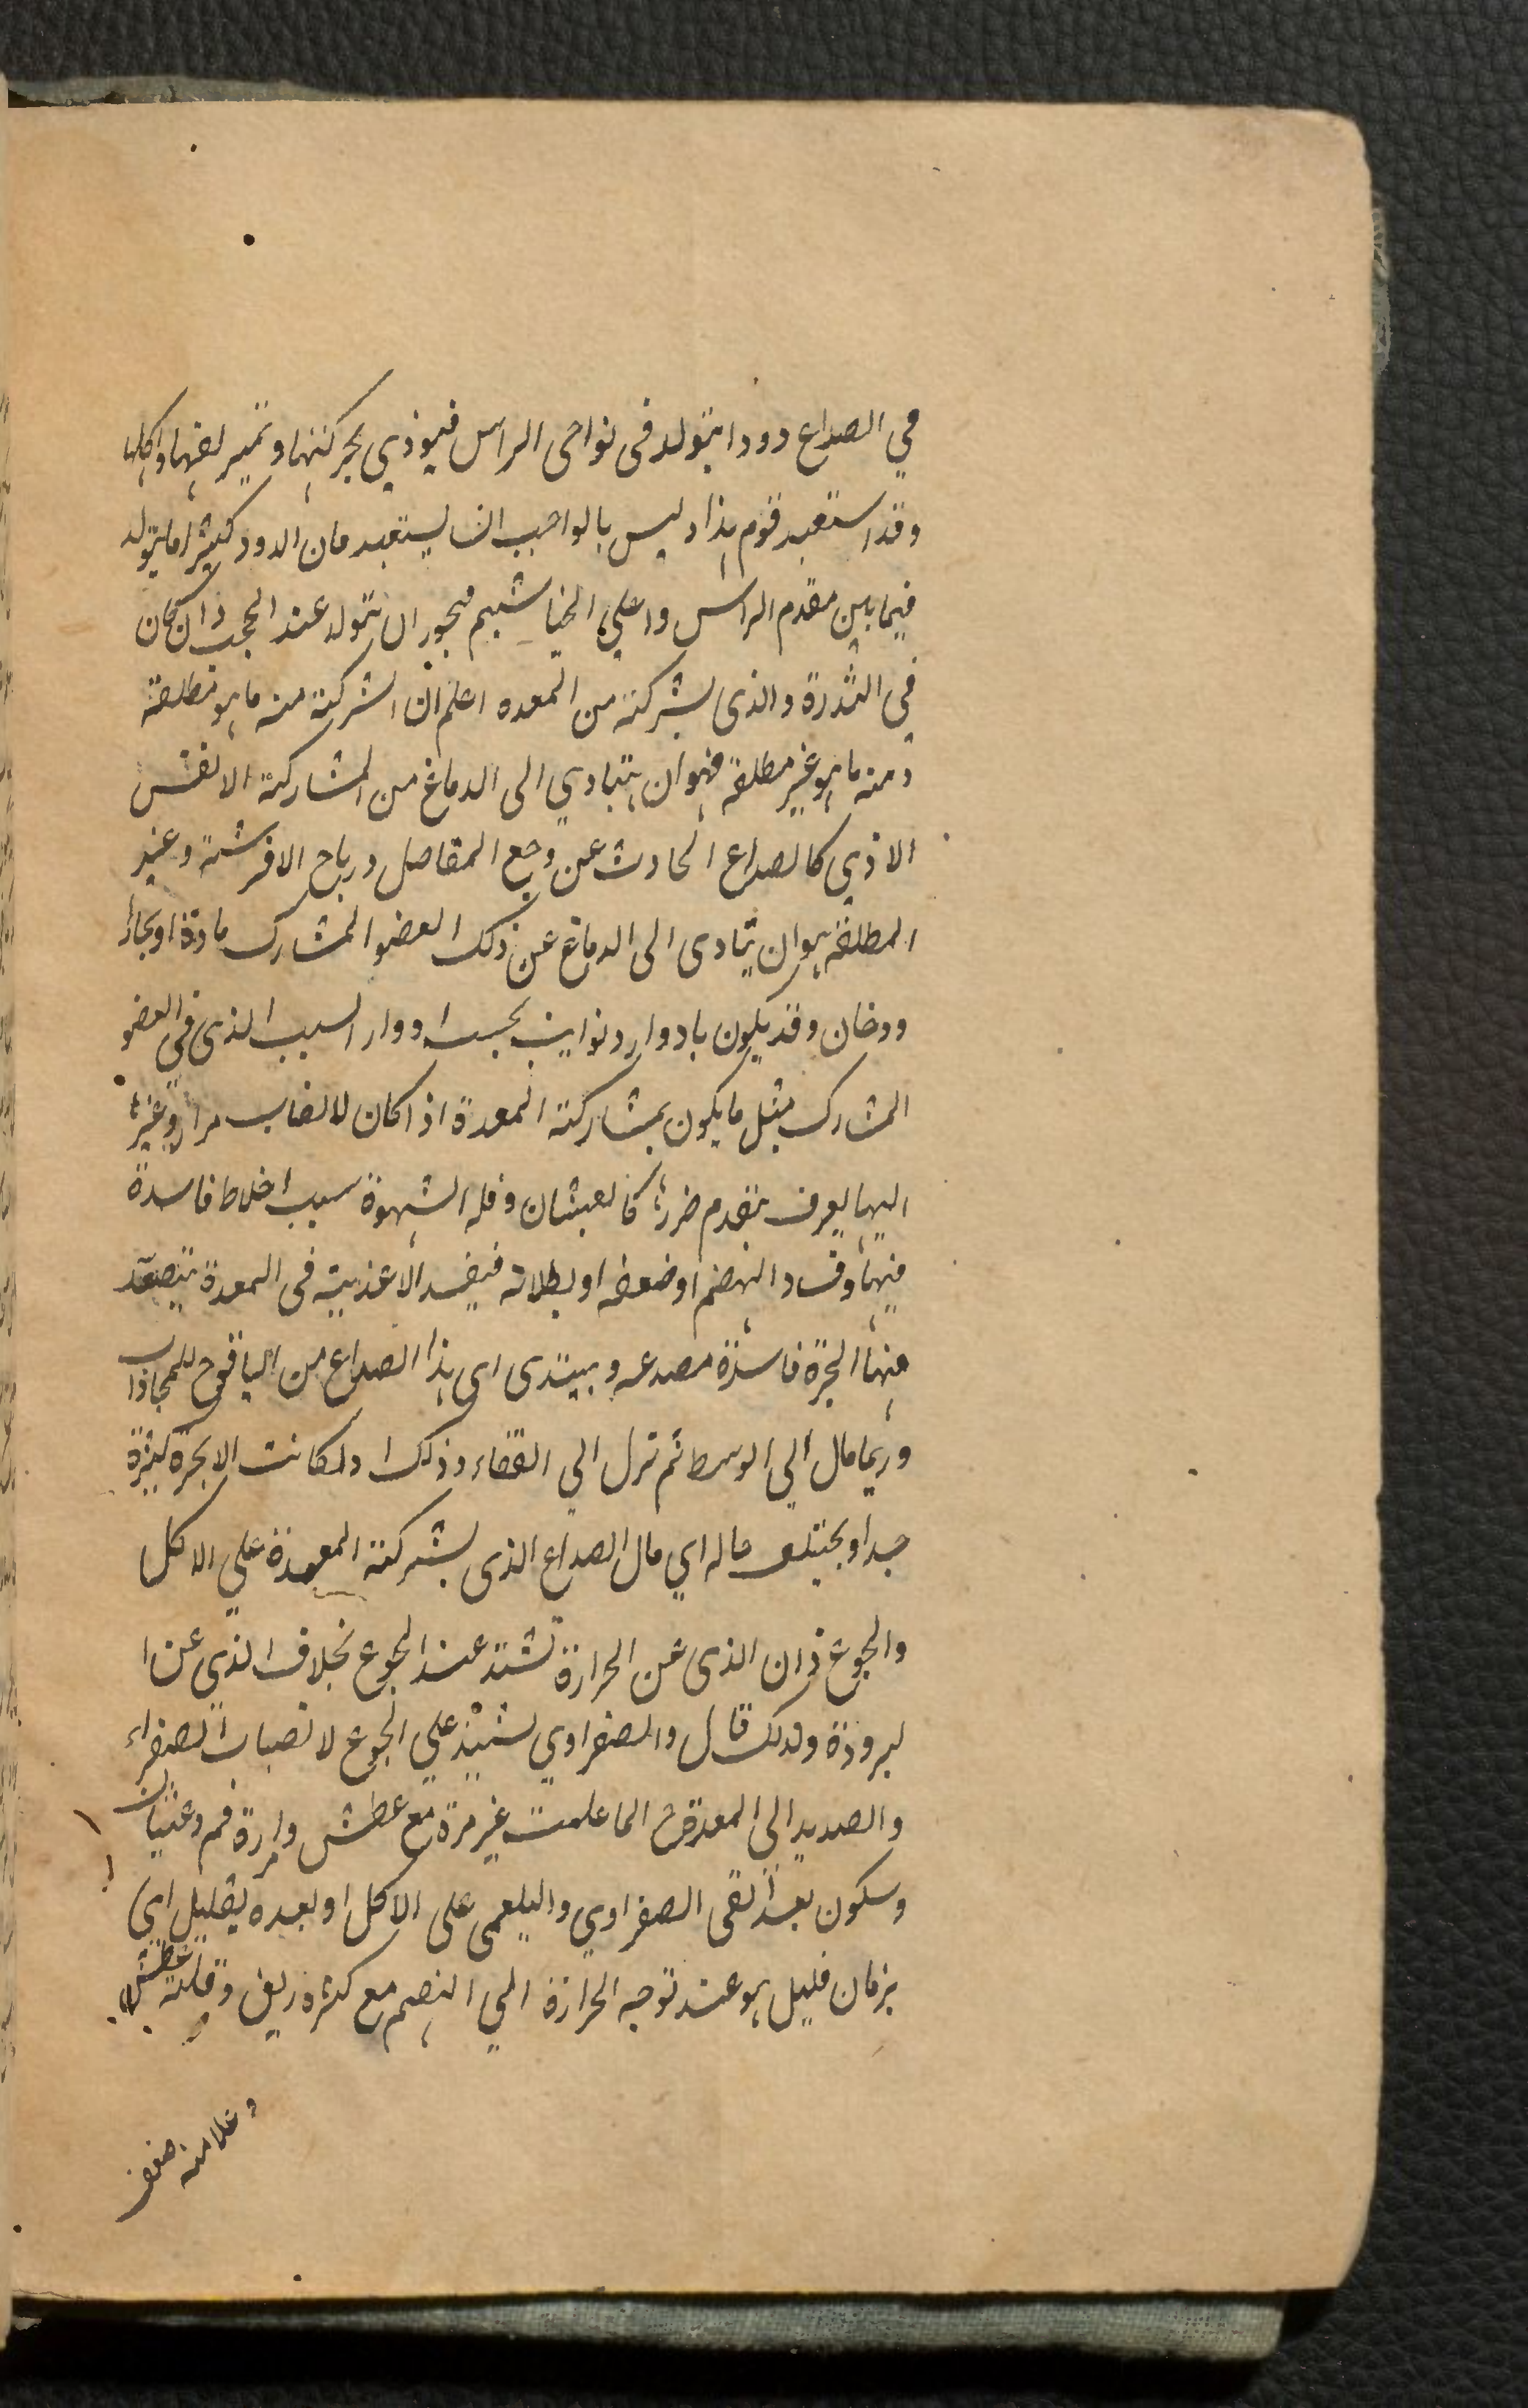 في الصداع دودا يتولد فى نواحى الراس فيوذي بحركتها و تميز لضها واكلها
وقد استعبد قوم هذا وليس بالواجب ان يستعبد فان الدود كثيرا ما يتولد
فيما بين مقدم الراس واعلي الخياشيم فيجوز ان يتولد عند الحجب وان كان
في الندرة والذى بشركته من المعده اعلم ان الشركة منه ما هو مطلقة
ومنه ما هو غير مطلقة فهو ان يتبادي الى الدماغ من المشاركة الا نفس
الاذي كالصداع الحادث عن وجع المفاصل ورياح الافرشة وغير
المطلقة هو ان يتادى الى الدماغ عن ذلك العضو المشارك مادة او بخار
ودخان وقد يكون بادوار ونوايب بحسب ادوار السبب الذى فى العضو
المشارك مثل ما يكون بمشاركة المعدة اذا كان لانصاب مرار وغيره
اليها يعرف بتقدم ضرره كالغثيان وقله الشهوة سبب اخلاط فاسدة
فيها وفساد الهضم او ضعفه او بطلانه فيفسد الاغذيية فى المعدة يتصعد
منها ابخرة فاسدة مصدعه ويبتدى اى هذا الصداع من اليافوخ للمحاذات
وربما مال الي الوسط ثم نزل الي القفاء وذلك اذا كانت الابخرة كثيرة
جدا ويختلف حاله اي حال الصداع الذى بشركته المعدة علي الاكل
والجوع فان الذى عن الحرارة تشتد عند الجوع بخلاف الذي عن ا
لبرودة ولذلك قال والصفراوي يشتد علي الجوع لانصباب الصفراء
والصديد الى المعدة لما علمت غير مرة مع عطش ومرارة فم وغثيان
وسكون بعد القى الصفراوي والبلغمى على الاكل او بعده بقليل اي
بزمان قليل هو عند توجه الحرارة الي الهضم مع كثرة ريق وقلة عطش
وعلامته ضعف